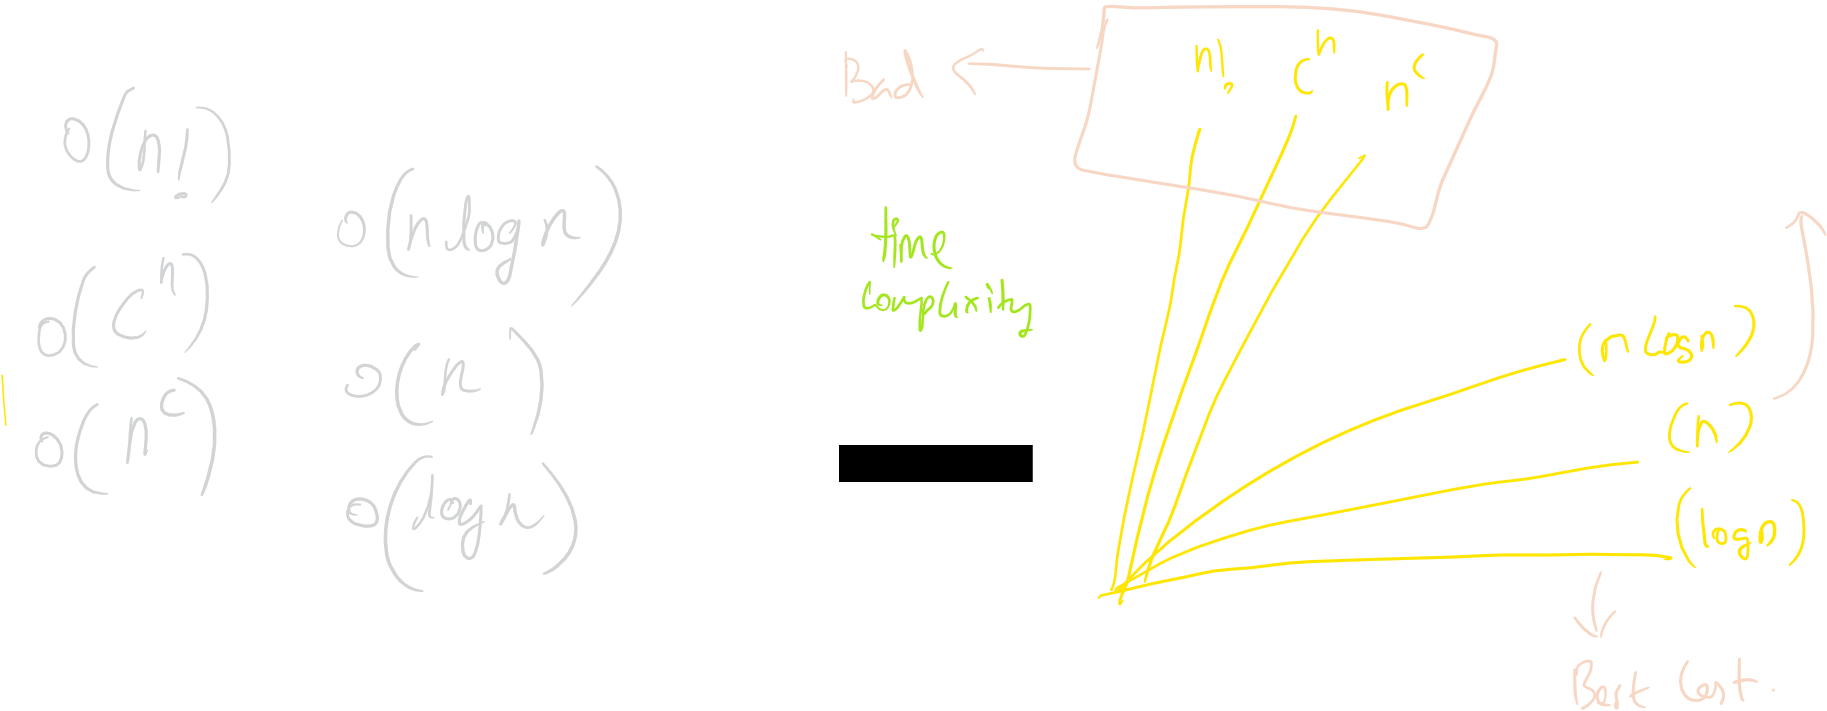 O(n!)
O(cⁿ)
O(nᶜ)
O(n logn)
O(n)
O(logn)
time
complixity
Bad
n!
cⁿ
nᶜ
(n logn)
(n)
(logn)
Best Cast.